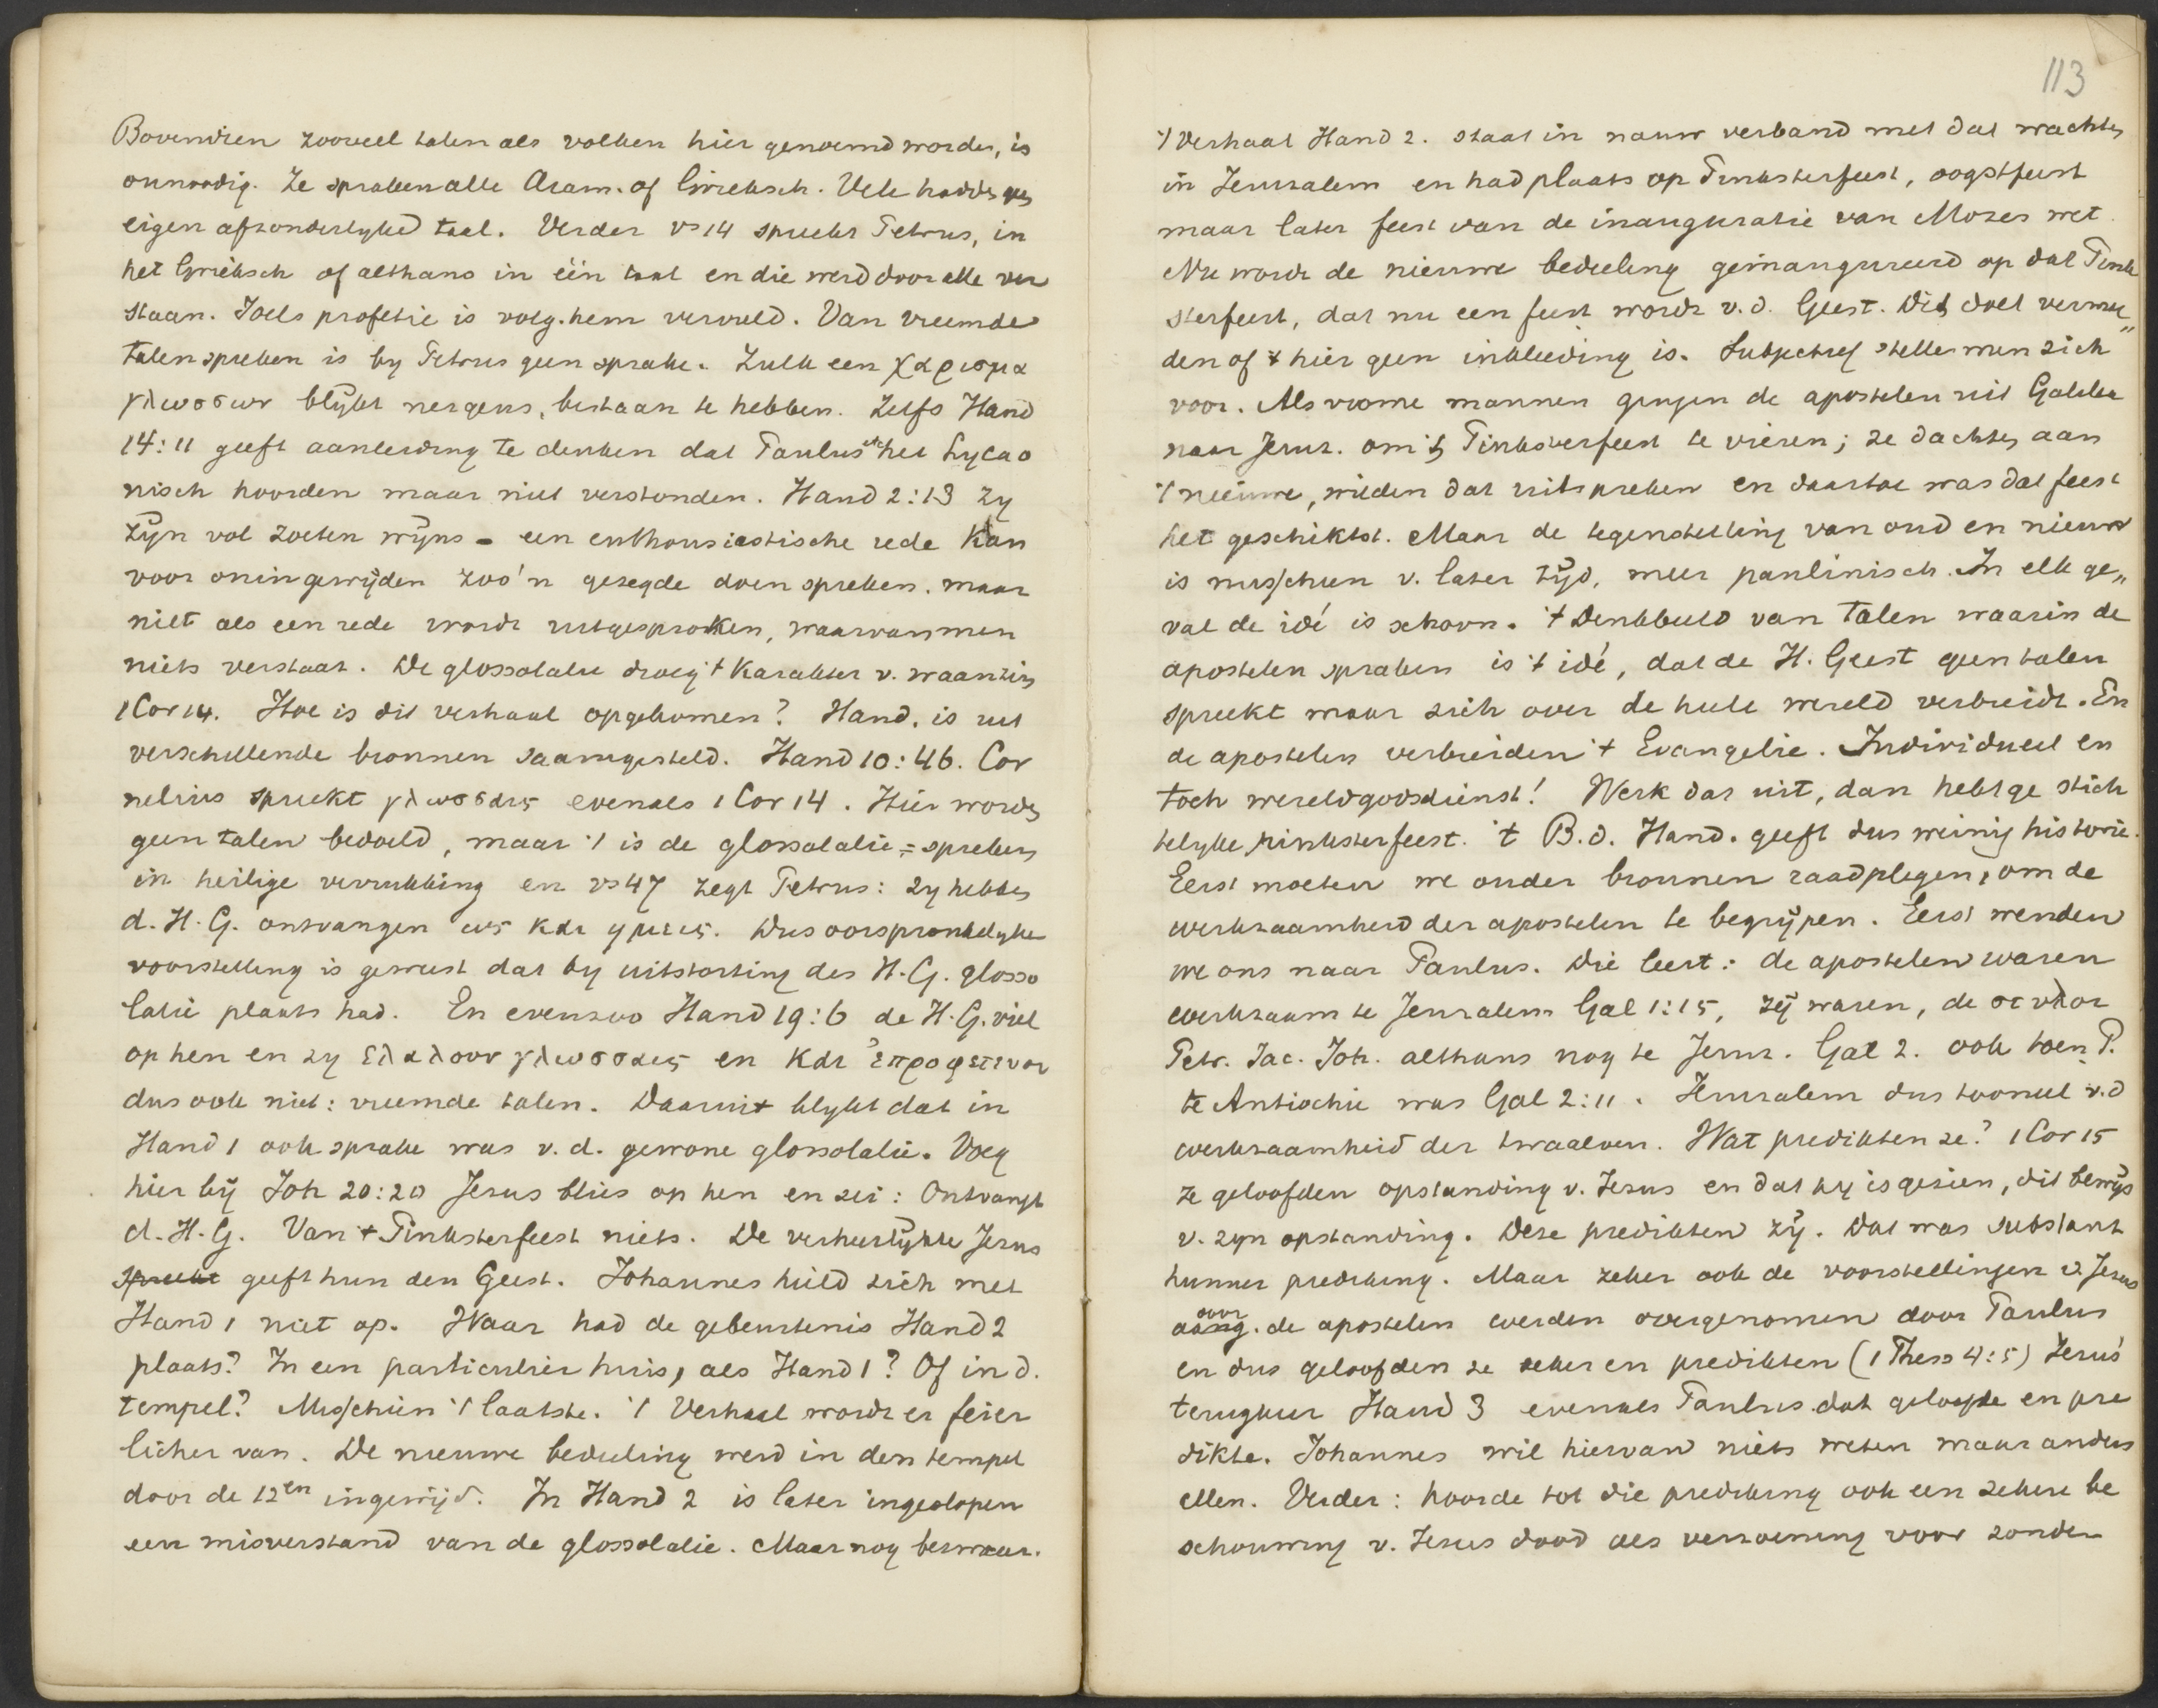 Bovendien zooveel talen als volken hier genoemd worden, is
onnoodig. Ze spraken alle Aram. of Grieksch. Vele hadden geen
eigen afzonderlyke taal. Verder vs 14 spreekt Petrus, in
het Grieksch of althans in één taal en die werd door alle ver
staan. Joels profetie is volg. hem vervuld. Van vreemde
talen spreken is by Petrus geen sprake. Zulk een χαρισμα
γλωσσων blÿkt nergens, bestaan te hebben. Zelfs Hand
14:11 geeft aanleiding te denken dat Paulus etc het Lycao
nisch hoorden maar niet verstonden. Hand 2:13 zy
zÿn vol zoeten wÿns - een enthousiastische rede kan
voor oningewÿden zoo'n gezegde doen spreken. maar
niet als een rede wordt uitgesproken, waarvan men
niets verstaat. De glossolalie droeg 't karakter v. waanzin
1 Cor 14. Hoe is dit verhaal opgekomen? Hand. is uit
verschillende bronnen saamgesteld. Hand 10:46. Cor
nelius spreekt γλωσσαις evenals 1 Cor 14. Hier worden
geen talen bedoeld, maar 't is de glossolalie = spreken
in heilige verrukking en vs 47 zegt Petrus: zy hebben
d. H. G. ontvangen ως και ημεις. Dus oorspronkelyke
voorstelling is geweest dat by uitstorting des H. G. glosso
lalie plaats had. En evenzoo Hand 19:6 de H. G. viel
op hen en zy ελαλουν γλωσσαις en και ἐπροφετευον
dus ook niet: vreemde talen. Daaruit blykt dat in
Hand 1 ook sprake was v. d. gewone glossolalie. Voeg
hier bÿ Joh 20:20 Jesus blies op hen en zei: Ontvangt
d. H. G. Van 't Pinksterfeest niets. De verheerlÿkte Jesus
spreekt geeft hun den Geest. Johannes hield zich met
Hand 1 niet op. Waar had de gebeurtenis Hand 2
plaats? In een particulier huis, als Hand 1? Of in d.
tempel? Misschien 't laatste. 't Verhaal wordt er feier
licher van. De nieuwe bedeeling werd in den tempel
door de 12en ingewÿd. In Hand 2 is later ingeslopen
een misverstand van de glossolalie. Maar nog bezwaar.
113
't Verhaal Hand 2. staat in nauw verband met dat wachten
in Jerusalem en had plaats op Pinksterfeest, oogstfeest
maar later feest van de inauguratie van Mozes wet.
Nu wordt de nieuwe bedeeling geinaugureerd op dat Pink
sterfeest, dat nu een feest wordt v. d. Geest. Dit doet vermoe„
den of 't hier geen inkleeding is. Subjectief stelle men zich
voor. Als vrome mannen gingen de apostelen uit Galilea
naar Jeruz. om 't Pinksterfeest te vieren; ze dachten aan
't nieuwe, wilden dat uitspreken en daartoe was dat feest
het geschiktst. Maar de tegenstelling van oud en nieuw
is misschien v. later tÿd, meer paulinisch. In elk ge„
val de idé is schoon. 't Denkbeeld van talen waarin de
apostelen spraken is 't idé, dat de H. Geest geen talen
spreekt maar zich over de heele wereld verbreidt. En
de apostelen verbreiden 't Evangelie. Individueel en
toch wereldgodsdienst! Werk dat uit, dan hebt ge stich
telyke pinksterfeest. 't B. d. Hand. geeft dus weinig historie.
Eerst moeten we ouder bronnen raadplegen, om de
werkzaamheid der apostelen te begrÿpen. Eerst wenden
we ons naar Paulus. Die leert: de apostelen waren
werkzaam te Jerusalem Gal 1:15, zÿ waren, de στυλοι
Petr. Jac. Joh. althans nog te Jeruz. Gal 2. ook toen P.
te Antiochie was Gal 2:11. Jerusalem dus tooneel v. d
werkzaamheid der twaalven. Wat predikten ze? 1 Cor 15
ze geloofden opstanding v. Jesus en dat hy is gezien, dit bewÿs
v. zyn opstanding. Deze predikten zÿ. Dat was substant
hunner prediking. Maar zeker ook de voorstellingen v. Jesus
door
aang. de apostelen werden overgenomen door Paulus
en dus geloofden ze zeker en predikten (1 Thess 4:5) Jesus'
terugkeer Hand 3 evenals Paulus dat geloofde en pre
dikte. Johannes wil hiervan niets weten maar anders
allen. Verder: hoorde tot die prediking ook een zekere be
schouwing v. Jesus dood als verzoening voor zonden